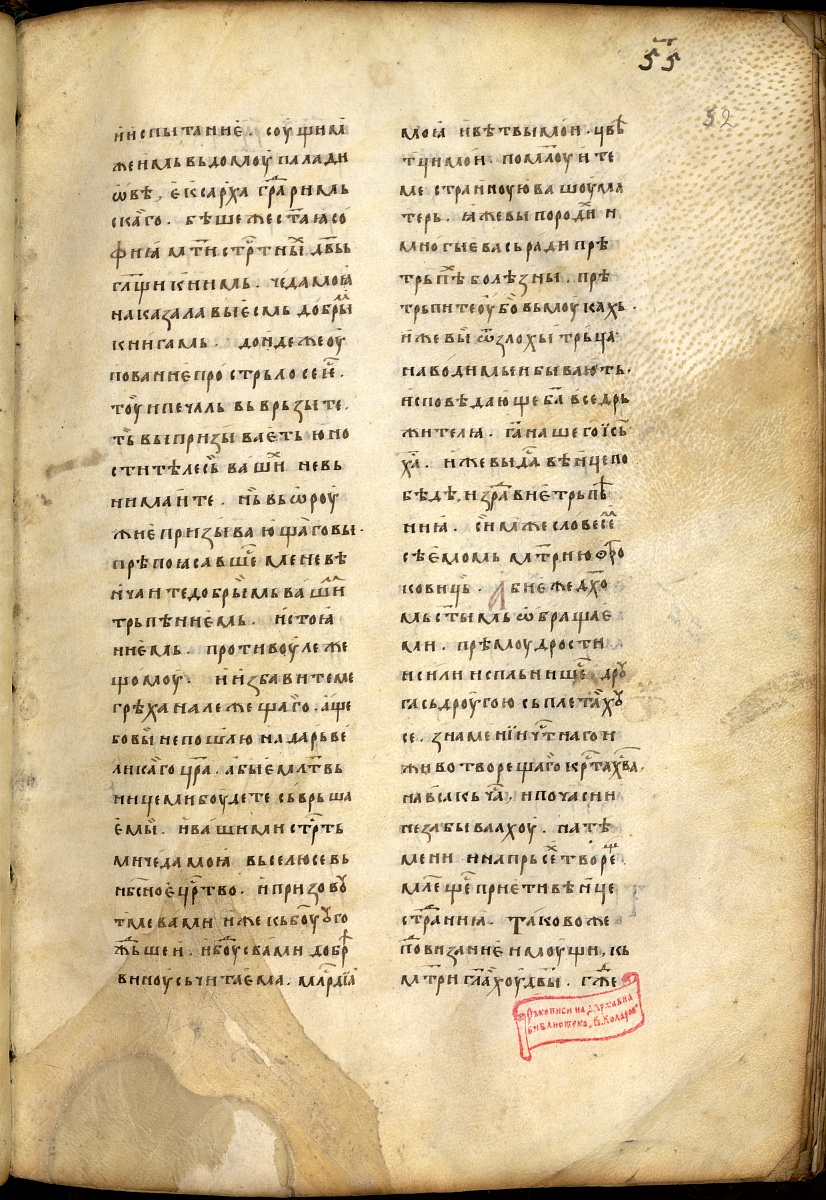 55
52
и испытаниѥ. соущим
же имь вь домоу палади
ѡвѣ, ѥксарха града римь
скаго. бѣше же стаꙗ со
фиꙗ мти стртны двьı
глщи к нимь. чеда моꙗ
наказала вы ѥсмь добры
книгамь. доиде же оу
пованиѥ прострьло се ѥ.
тоу и печаль вьврьзыте.
тъ вы призываѥть юно
сти тѣлесь ваши не вь
нимаите. нь вь ѡроу
жиѥ призывающаго вы.
прѣпоꙗсавше мене вѣ
нчаите добрымь ваши
трьпѣниѥмь. и стоꙗ
ниѥмь. противоу леже
щомоу. и избавите ме
грѣха належещаго. аще
бо вы не пошлю на дарь ве
ликаго цра. абыѥ млтвь
нице ми боудете сьврьша
ѥмы. и вашими стрть
ми чеда моꙗ вьселю се вь
нбсноѥ цртво. и призовꙋ
тме вами иже кь боу ꙋго
жьшеи. и боу с вами добр
виноу сьчитаѥма. млрдїꙗ
моꙗ и вѣтвы мои. цвѣ
тци мои. помлоуите
ме странноую вашоу ма
терь. ꙗже вы породи и
многые вась ради прѣ
трьпѣ болѣзны. прѣ
трьпите оубо вь моукахь.
иже вы ѿ злохытрьца
наводимы и бывають.
исповѣдающе ба вседрь
жителꙗ. га нашего їсь
ха. иже вы да вѣнце по
бѣдѣ, и здравиѥ трьпѣ
ниꙗ. сим же словесе
сѣѥмомь мтрию ѡтро
ковиць. Абиѥ же дхо
мь стымь ѡбращаѥ
ми. прѣмоудрости
и сили испльнише дроу
га сь дроугою сьплетахꙋ
се. знамении чтнаго и
животворещаго крта хва,
на всꙗкь ча, и почасии
не забываахоу. на тѣ
мени и на прьсе творе.
мле ще приѥти вѣнце
страниꙗ. Таково же
повизаниѥ имоущи, кь
мтри глахоу двы. гже
Ръкописи на държавна
библиотека „В. Коларов"